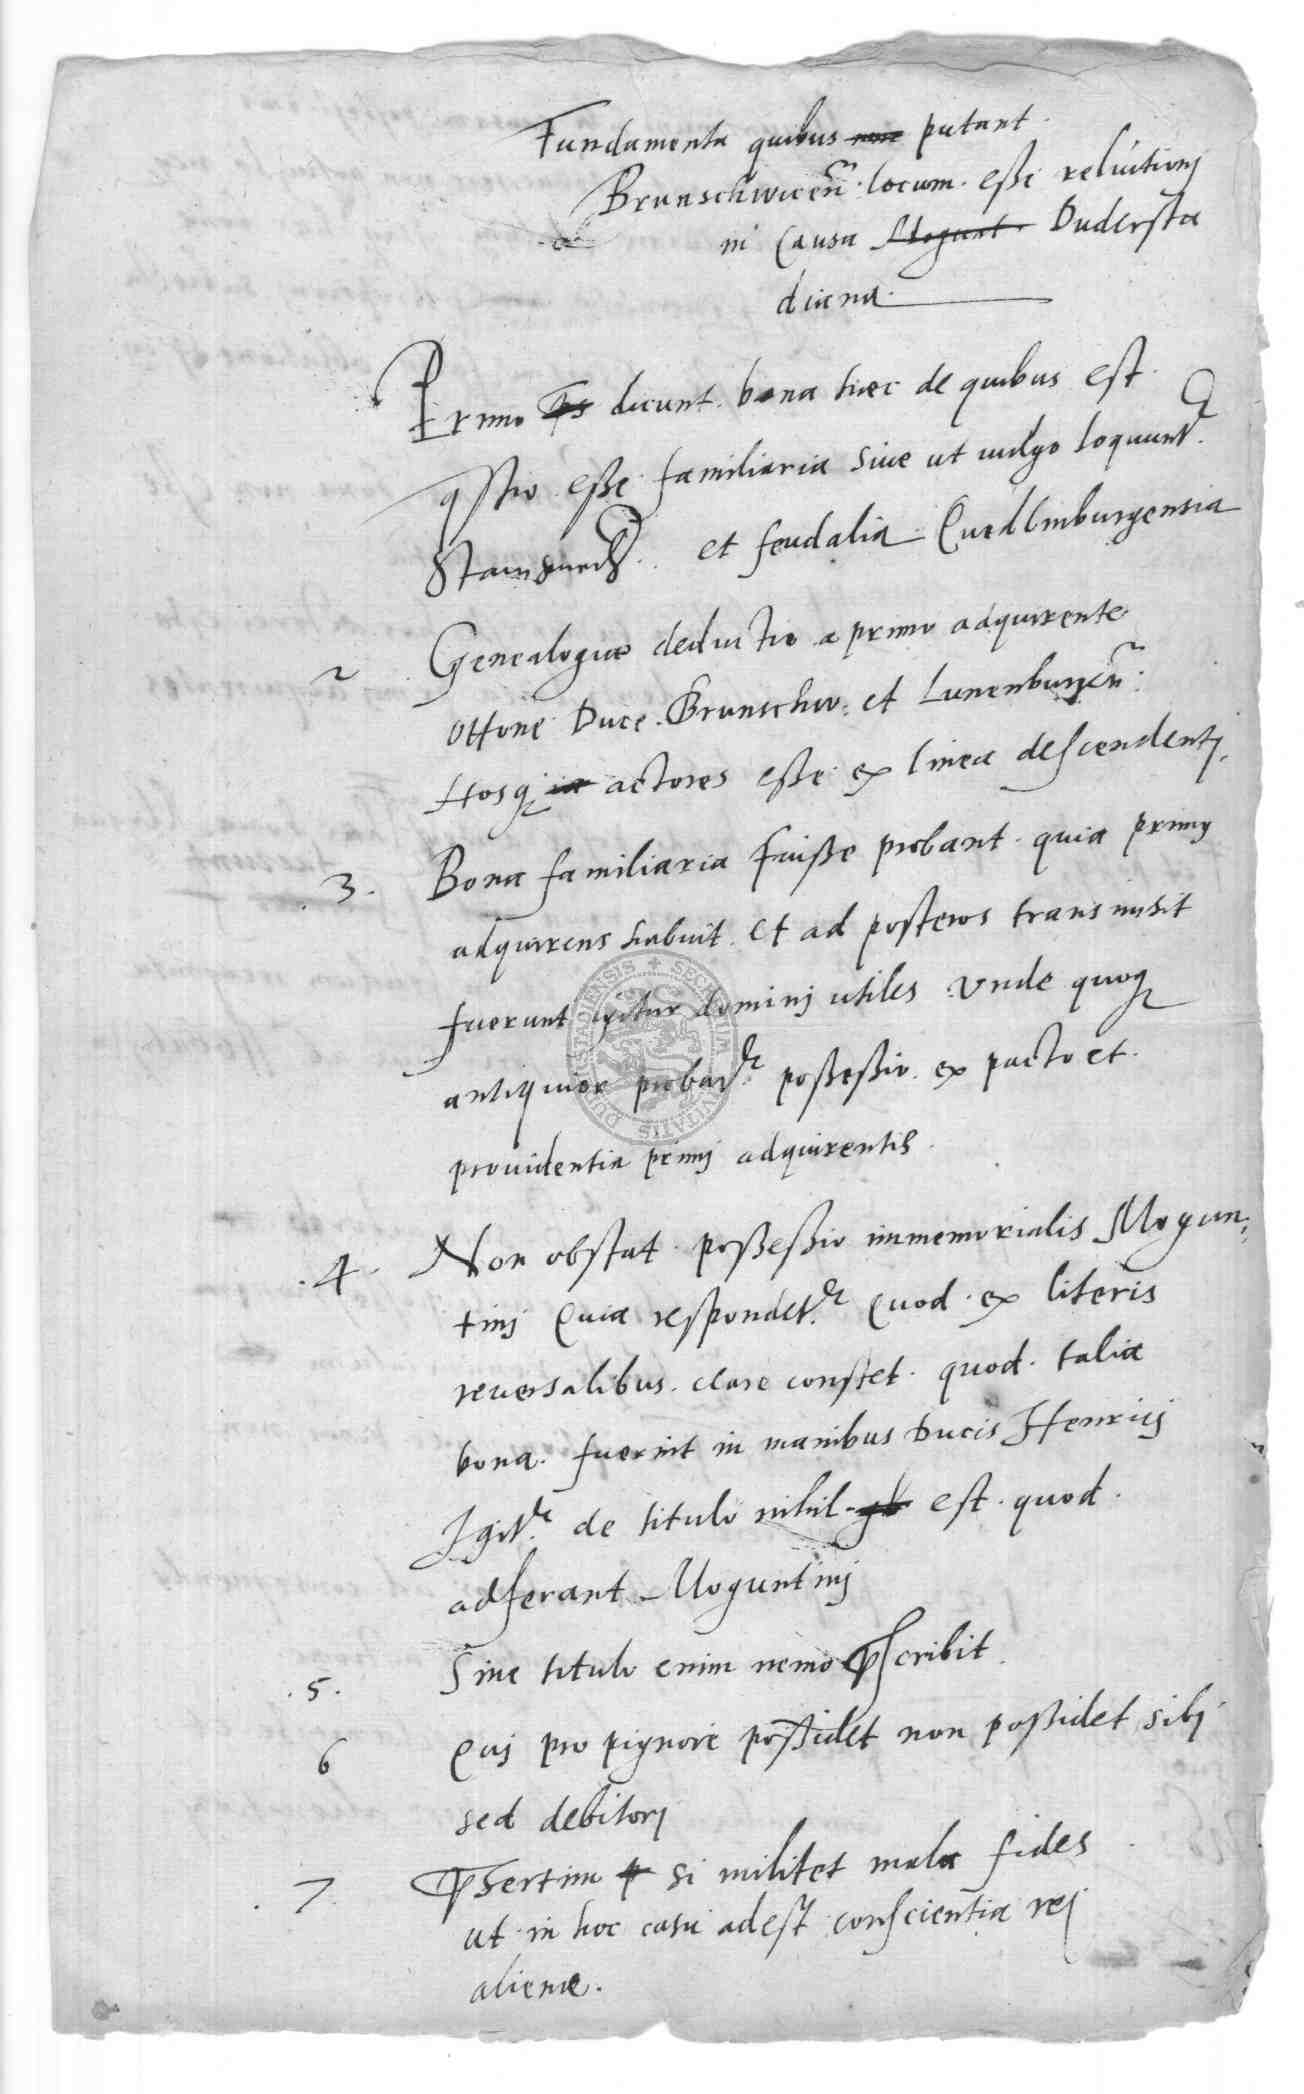 Fundamenta quibus putant
Brunschwicen̄. locum. esse reluitionj
in Causa Mogunt. Dudersta
diana.
Primo dicunt. bona haec de quibus est
qstio esse familiaria siue ut uulgo loquunt^r.
et feudalia Quedlinburgensia
2 Genealogiae deductio a primo adquirente
Ottone Duce. Brunschw: et Lunenburgen̄:
Hosq actores esse ex linea descendentj.
.3. Bona familiaria fuisse probant. quia primus
adquirens habuit. et ad posteros transmisit
fuerunt igitur dominj utiles Vnde quoq
antiquior probat^r. possessio. ex pacto et.
prouidentia primj adquirentis.
.4. Non obstat. possessio immemorialis Mogun:
tinj Quia respondet^r. Quod. ex literis
reuersalibus. clare constet. quod. talia
bona. fuerint in manibus Ducis Henricj
Igit^r. de titulo nihil est. quod.
adferant Moguntinj
.5. Sine titulo enim nemo p̄scribit.
6 Quj pro pignore possidet non possidet sibj
sed debitorj
.7. p̄sertim si militet mala fides
ut in hoc casu adest conscientia rej
alienae.
SECRETUM CIVITATIS DUDERSTADIENSIS